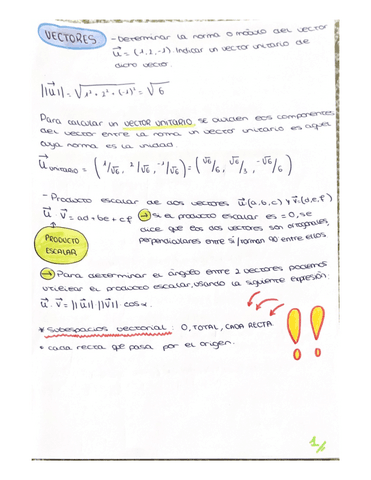 VECTORES - Determinar la norma o módulo del vector
u⃗ = (1, 2, -1). Indicar un vector unitario de
dicho vector.
||u⃗|| = √(1² + 2² + (-1)²) = √6
Para calcular un VECTOR UNITARIO se dividen los componentes
del vector entre la norma un vector unitario es aquel
cuya norma es la unidad.
u⃗ unitario = (1/√6, 2/√6, -1/√6) = (√6/6, √6/3, -√6/6)
- Producto escalar de dos vectores u⃗(a,b,c) y v⃗(d,e,f)
u⃗ v⃗ = ad + be + cf → Si el producto escalar es = 0, se
dice que los dos vectores son ortogonales,
PRODUCTO ESCALAR
perpendiculares entre sí / forman 90 entre ellos.
→ Para determinar el ángulo entre 2 vectores podemos
utilizar el producto escalar, usando la siguiente expresión:
u⃗ · v⃗ = ||u⃗|| ||v⃗|| cos α.
* Subespacios vectorial: 0, TOTAL, CADA RECTA
• cada recta que pasa por el origen.
!!
1/